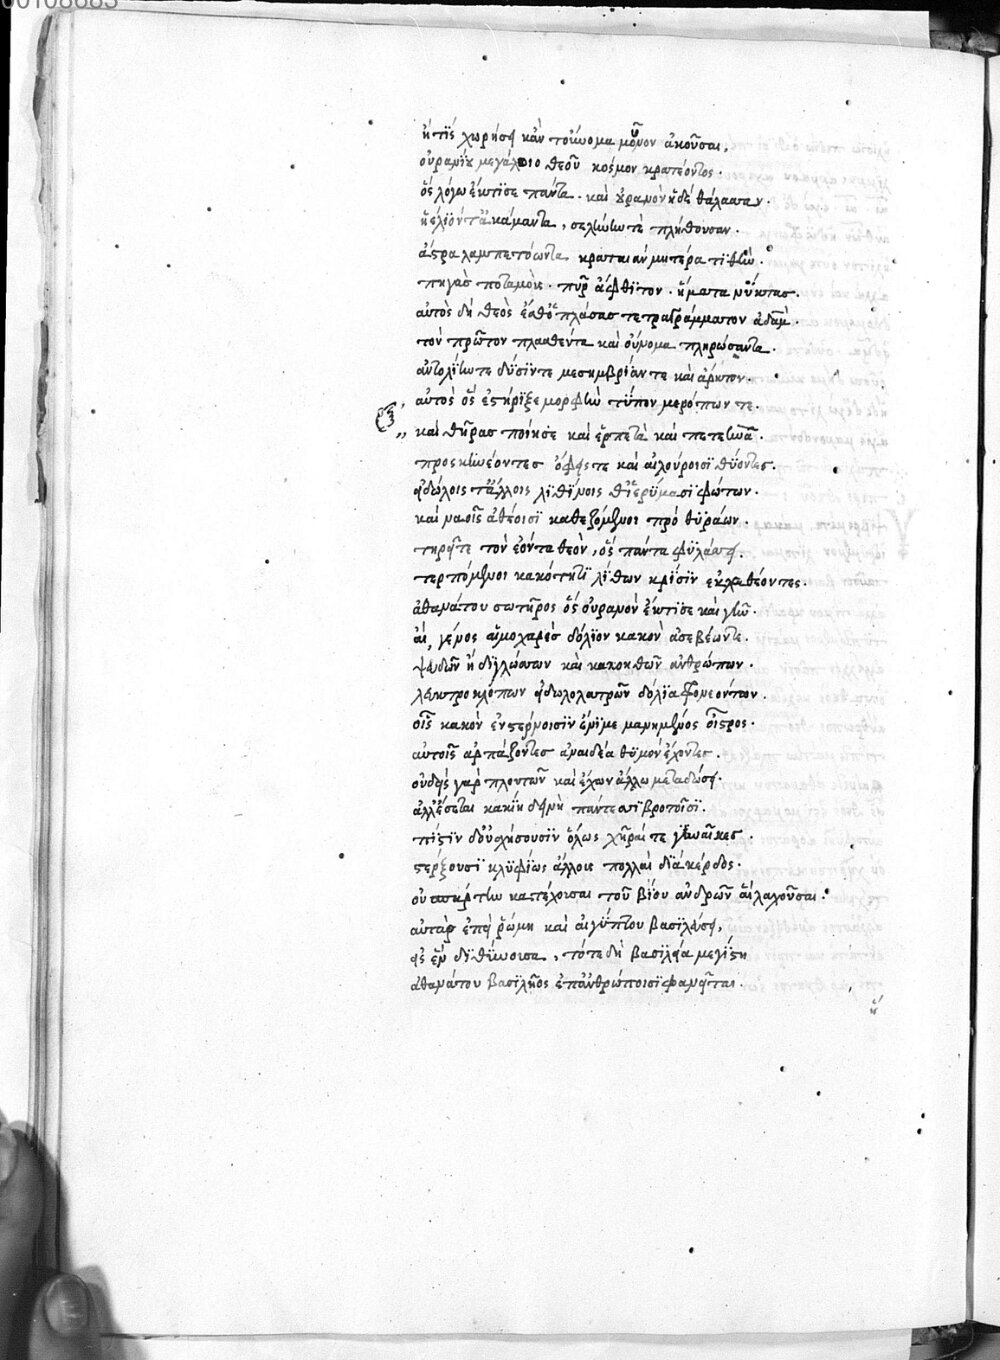 00108683
ἤ τίς χωρήσει κἂν τοὔνομα μοῦνον ἀκοῦσαι,
οὐρανίου μεγάλοιο θεοῦ κόσμον κρατέοντος.
ὅς λόγω ἔκτισε πάντα. καὶ οὐρανὸν ἠδὲ θάλασσαν.
ἠέλιόν τ' ἀκάμαντα, σελήνην τὲ πλήθουσαν.
ἄστρα λαμπετόωντα κραταιὰν μητέρα τιθὼ.
πηγὰς ποταμοὺς. πῦρ ἄφθιτον. ἤματα νύκτας.
αὐτὸς δὴ θεὸς ἔσθ' ὃ πλάσας τετραγράμματον ἀδὰμ.
τὸν πρῶτον πλασθέντα καὶ οὔνομα πληρώσαντα.
ἀντολίην τε δύσιν τε μεσημβρίαν τε καὶ ἄρκτον.
αὐτὸς ὃς ἐστήριξε μορφὴν τύπον μερόπων τε.
καὶ θῆρας ποίησε καὶ ἑρπετὰ καὶ πετεηνὰ.
προσκυνέοντες ὄφεις τε καὶ αἰλούροισι θύοντες.
εἰδώλοις τ' ἄλλοις λιθίνοις θ' ἱερύμασι φώτων.
καὶ ναοῖς ἀθέοισι καθεζόμενοι πρὸ θυράων.
τηρεῖτε τὸν ἐόντα θεὸν, ὃς πάντα φυλάσσει.
τερπόμενοι κακότητι λίθων κρίσιν ἐκλαθέοντες.
ἀθανάτου σωτῆρος ὃς οὐρανὸν ἔκτισε καὶ γῆν.
αἲ, γένος αἱμοχαρὲς δόλιον κακὸν ἀσεβέων τε.
ψευδῶν ἠ διγλώσσων καὶ κακοηθῶν ἀνθρώπων.
λεκτροκλόπων εἰδωλολατρῶν δόλια φρονεόντων.
οἷς κακὸν ἐν στέρνοισιν ἔνι μεμανημένος οἶστρος.
αὐτοῖς ἁρπάζοντες ἀναιδέα θυμὸν ἔχοντες.
οὐδεὶς γὰρ πλουτῶν καὶ ἔχων ἄλλω μεταδώσει.
ἀλλ' ἔσεται κακίη δεινὴ πάντεσσι βροτοῖσι.
πίστιν δ' οὐ σχήσουσιν ὅλως χῆραί τε γυναῖκες.
στέρξουσι κρυφίως ἄλλους πολλαὶ διὰ κέρδος.
οὐ σπάρτην κατέχουσαι τοῦ βίου ἀνδρῶν αἱ λαχοῦσαι.
αὐτὰρ ἐπεὶ ῥώμη καὶ αἰγύπτου βασιλεύσει,
εἰς ἓν διθύνουσα, τότε δὴ βασιλεία μεγίστη
ἀθανάτου βασιλῆος ἐπ' ἀνθρώποισι φανεῖται.
ἥ